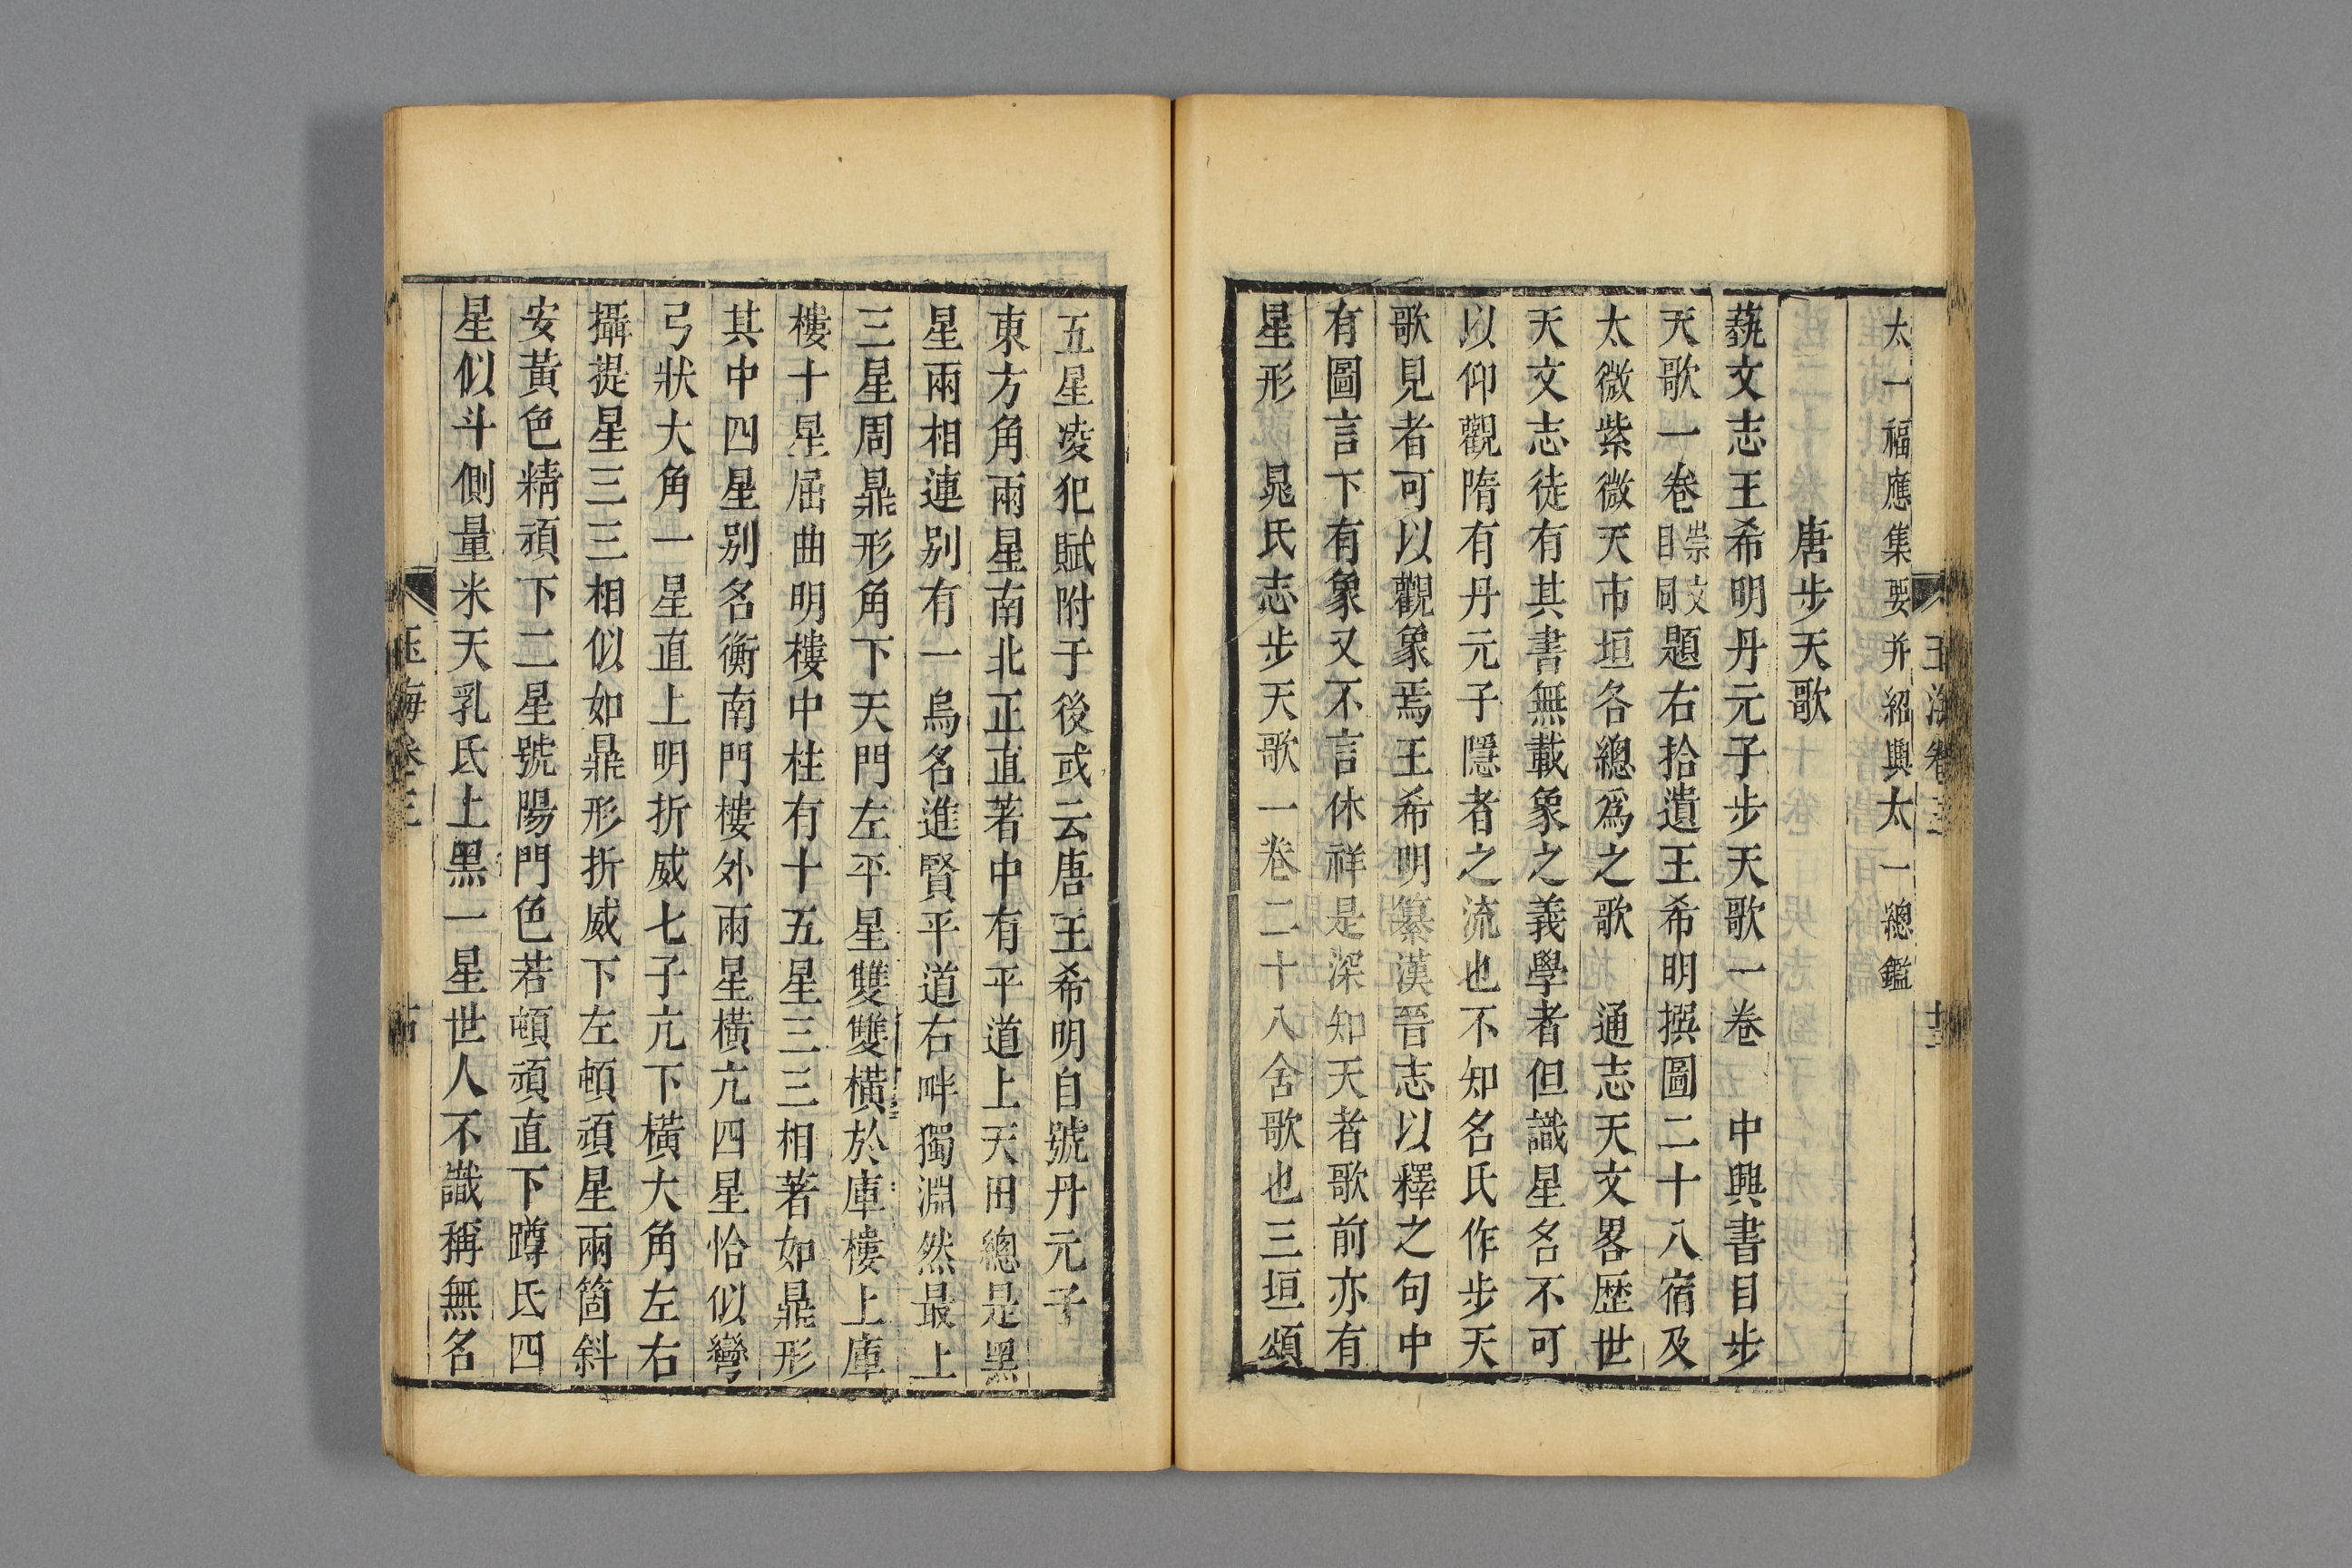 玉海卷三
太一福應集要并紹興太一總鑑
唐步天歌
藝文志王希明丹元子步天歌一卷　中興書目步
天歌一卷崇文目同題右拾遺王希明撰圖二十八宿及
太微紫微天市垣各總爲之歌　通志天文畧歷世
天文志徒有其書無載象之義學者但識星名不可
以仰觀隋有丹元子隱者之流也不知名氏作步天
歌見者可以觀象焉王希明纂漢晉志以釋之句中
有圖言下有象又不言休祥是深知天者歌前亦有
星形　晁氏志步天歌一卷二十八舍歌也三垣頌
五星凌犯賦附于後或云唐王希明自號丹元子
東方角兩星南北正直著中有平道上天田總是黑
星兩相連別有一烏名進賢平道右畔獨淵然最上
三星周鼎形角下天門左平星雙雙橫於庫樓上庫
樓十星屈曲明樓中柱有十五星三三相著如鼎形
其中四星別名衡南門樓外兩星橫亢四星恰似彎
弓狀大角一星直上明折威七子亢下橫大角左右
攝提星三三相似如鼎形折威下左頓頑星兩箇斜
安黃色精頑下二星號陽門色若頓頑直下蹲氐四
星似斗側量米天乳氐上黑一星世人不識稱無名
玉海卷三